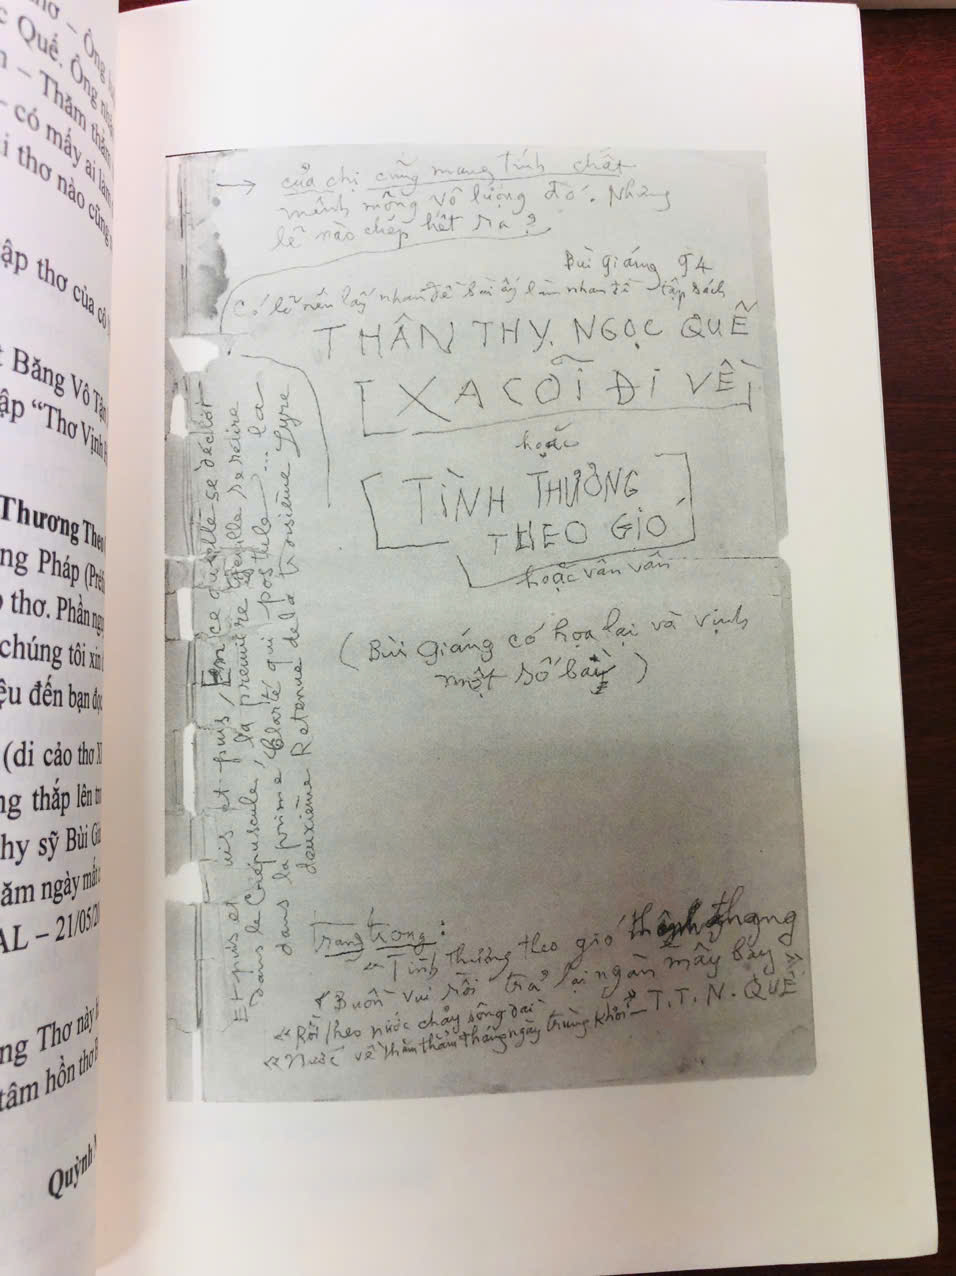 thơ – Ông
Quế. Ông
– Thăm thẳm
– có mấy ai làm
thơ nào cũng
tập thơ của cô
Băng Vô Tận
tập “Thơ Vịnh
Thương Theo
Pháp
thơ. Phần
chúng tôi xin
đến bạn đọc
(di cảo thơ
thắp lên
sỹ Bùi
ngày mất
AL – 21/05/20
Thơ này
tâm hồn thơ
Quỳnh
→ của chị cũng mang tính chất
mênh mông vô lượng đó. Nhưng
lẽ nào chép hết ra?
Bùi Giáng 94
Có lẽ nên lấy nhan đề bài ấy làm nhan đề tập sách
THÂN THY. NGỌC QUẾ
[XA CÕI ĐI VỀ]
hoặc
[TÌNH THƯƠNG
THEO GIÓ]
hoặc vân vân
(Bùi Giáng có họa lại và vịnh
một số bài)
Et puis et puis et puis, Est-ce qu'elle se déclôt
dans le Crépuscule, la première feuille se retire
dans la prime Clarté qui postule ... la
deuxième Retenue de la troisième Lyre
Trang trong:
“Tình thương theo gió thênh thang
Buồn vui rồi trả lại ngàn mây bay”
“Rồi theo nước chảy sông dài
“Nước về thăm thẳm tháng ngày trùng khơi” – T.T.N. QUẾ